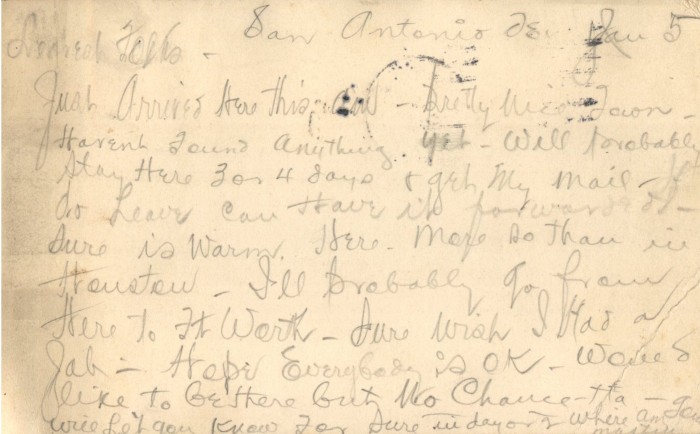 San Antonio Jan 5
Dearest Folks -
Just Arrived Here this - Pretty Nice Town -
Havent Found Anything yet - Will Probably
Stay Here 3 or 4 days & get My Mail - If
do Leave can Have it forwarded -
Sure is Warm Here - More So than in
Houston - I'll Probably Go from
Here To Ft Worth - Sure Wish I Had a
Job - Hope Everybody is OK - Would
like to be there but No Chance -
will Let you Know For Sure in day or 2 Where am